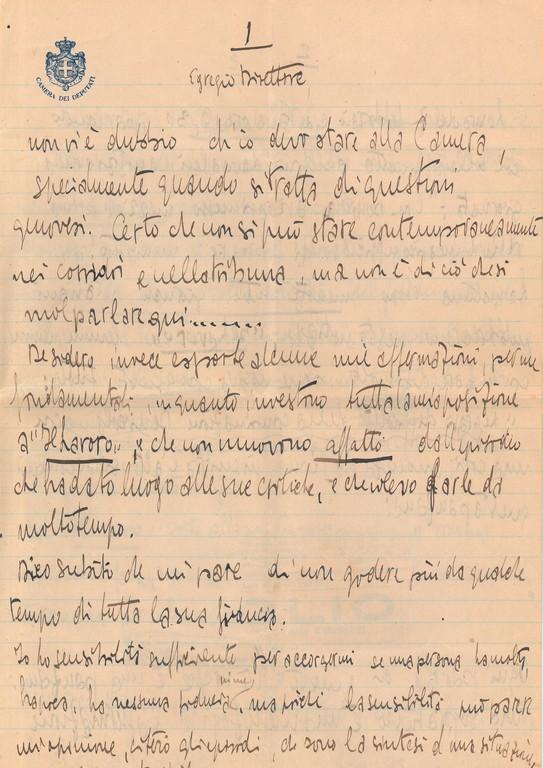 1
CAMERA DEI DEPUTATI
Egregio Direttore,
non vi è dubbio ch'io devo stare alla Camera,
specialmente quando si tratta di questioni
genovesi. Certo che non si può stare contemporaneamente
nei corridoi e nella tribuna, ma non è di ciò che si
vuol parlar qui.......
Desidero invece esporle alcune mie affermazioni, per me
fondamentali, in quanto investono tutta la mia posizione
a "Il Lavoro", e che non muovono affatto dall'episodio
che ha dato luogo alle sue critiche, e che volevo farle da
molto tempo.
Dico subito che mi pare di non godere più da qualche
tempo di tutta la sua fiducia.
Io ho sensibilità sufficiente per accorgermi se una persona ha molta,
ha poca, ha nessuna fiducia, ma poichè la sensibilità può parere
un'opinione, citerò gli episodi, che sono la sintesi d'una situazione